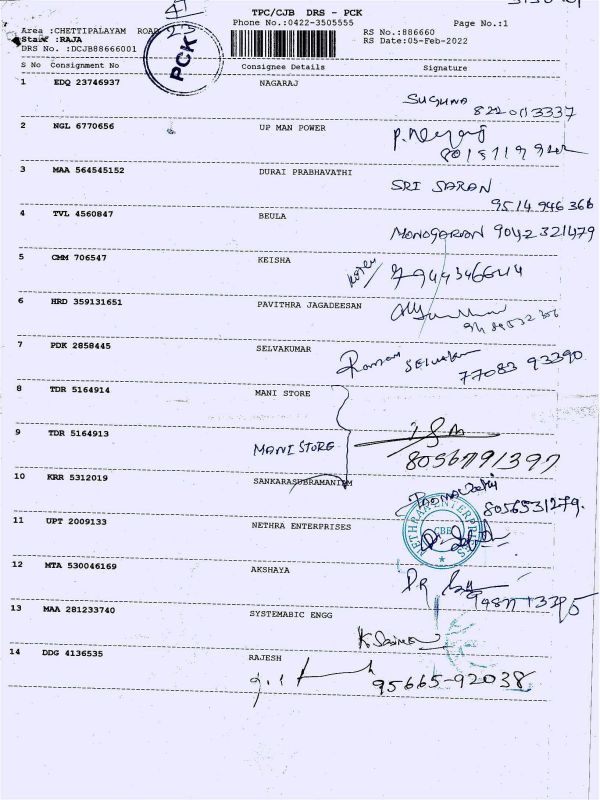 TPC/CJB DRS - PCK
Phone No.:0422-3505555 Page No.:1
Area :CHETTIPALAYAM ROAD
RS No.:886660
Staff :RAJA
RS Date:05-Feb-2022
DRS No. :DCJB88666001
PCK
S No Consignment No Consignee Details Signature
1 EDQ 23746937 NAGARAJ
SUGUNA
8220113337
2 NGL 6770656 UP MAN POWER
3 MAA 564545152 DURAI PRABHAVATHI
SRI SARAN
9514 946 366
4 TVL 4560847 BEULA
9042321479
5 CMM 706547 KEISHA
6 HRD 359131651 PAVITHRA JAGADEESAN
7 PDK 2858445 SELVAKUMAR
77083 93390
8 TDR 5164914 MANI STORE
9 TDR 5164913 MANI STORE
8056791397
10 KRR 5312019 SANKARASUBRAMANIAM
8056531279.
11 UPT 2009133 NETHRA ENTERPRISES
NETHRAA ENTERPRISES
CBE
12 MTA 530046169 AKSHAYA
13 MAA 281233740 SYSTEMABIC ENGG
14 DDG 4136535 RAJESH
95665-92038